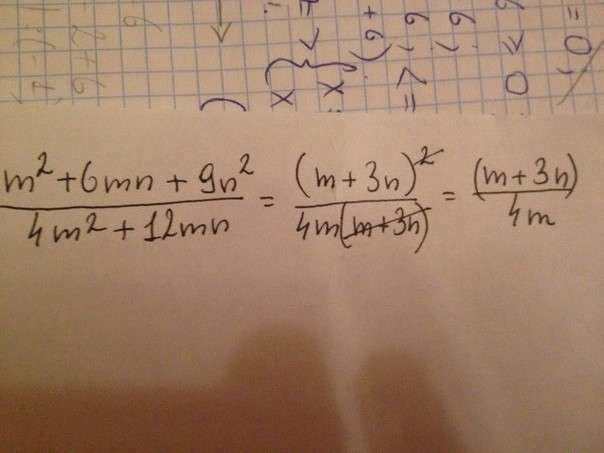 m² + 6mn + 9n² / 4m² + 12mn = (m + 3n)² / 4m(m + 3n) = (m + 3n) / 4m